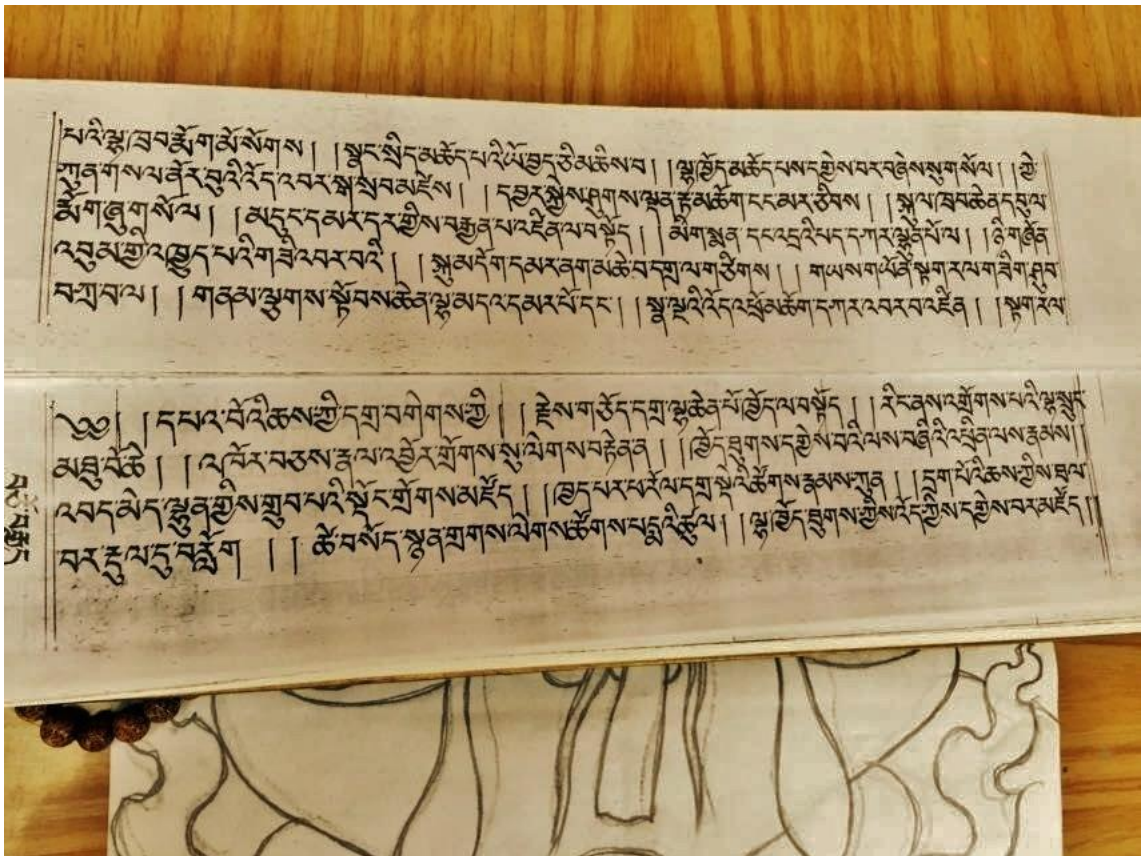 པའི་ལྷ་ཁྲབ་རྨོག་མོ་སོགས། །སྣང་སྲིད་མཆོད་པའི་ཡོ་བྱད་ཅི་མཆིས་བ། །ལྷ་ཁྱོད་མཆོད་པས་དགྱེས་བར་བཞེས་སུ་གསོལ། །ཀྱེ
ཀུན་གསལ་ནོར་བུའི་འོད་འབར་སྒ་སྲབ་མཛེས། །དབྱར་སྐྱེས་ཤུགས་ལྡན་རྟ་མཆོག་ངང་མར་ཅིབས། །སྐུ་ལ་ཁྲབ་ཆེན་དབུ་ལ
རྨོག་ཞུ་གསོལ། །མདུང་དམར་དར་གྱིས་བརྒྱན་པ་འཛིན་ལ་བསྟོད། །མིག་སྨན་དང་འདྲའི་པད་དཀར་ལྷུན་པོ་ལ། །ཉི་གཞོན
འབུམ་གྱི་འཁྱུད་པའི་གཟི་འབར་བའི། །སྐུ་མདོག་དམར་ནག་མཆེ་བ་དགྲ་ལ་གཙིགས། །གཡས་གཡོན་སྟག་རལ་གཟིག་ཤུབ
བཀྲ་བ་ལ། །གནམ་ལྕགས་སྟོབས་ཆེན་ལྷ་མདའ་དམར་པོ་དང་། །སྣ་ལྔའི་འོད་འཕྲོ་མཆོག་དཀར་འབར་བ་འཛིན། །སྟག་རལ
༄༅། །དཔའ་བོའི་ཆས་ཀྱི་དགྲ་བགེགས་ཀྱི། །རྗེས་གཅོད་དགྲ་ལྷ་ཆེན་པོ་ཁྱོད་ལ་བསྟོད། །རིང་ནས་འགྲོགས་པའི་ལྷ་སྲུང
མཐུ་བོ་ཆེ། །འཁོར་བཅས་རྣལ་འབྱོར་གྲོགས་སུ་ལེགས་བརྟེན་ན། །ཁྱོད་ཐུགས་དགྱེས་བའི་ལས་བཞིའི་འཕྲིན་ལས་རྣམས།།
འབད་མེད་ལྷུན་གྱིས་གྲུབ་པའི་སྟོང་གྲོགས་མཛོད། །ཁྱད་པར་པ་རོལ་དགྲ་སྡེའི་ཚོགས་རྣམས་ཀུན། །དྲག་པོའི་ཆས་ཀྱིས་ཐལ
བར་རྡུལ་དུ་བརློག །།ཚེ་བསོད་སྙན་གྲགས་ལེགས་ཚོགས་པདྨའི་ཚུལ། །ལྷ་ཁྱོད་ཐུགས་ཀྱིས་འོད་ཀྱིས་དགྱེས་བར་མཛོད།།